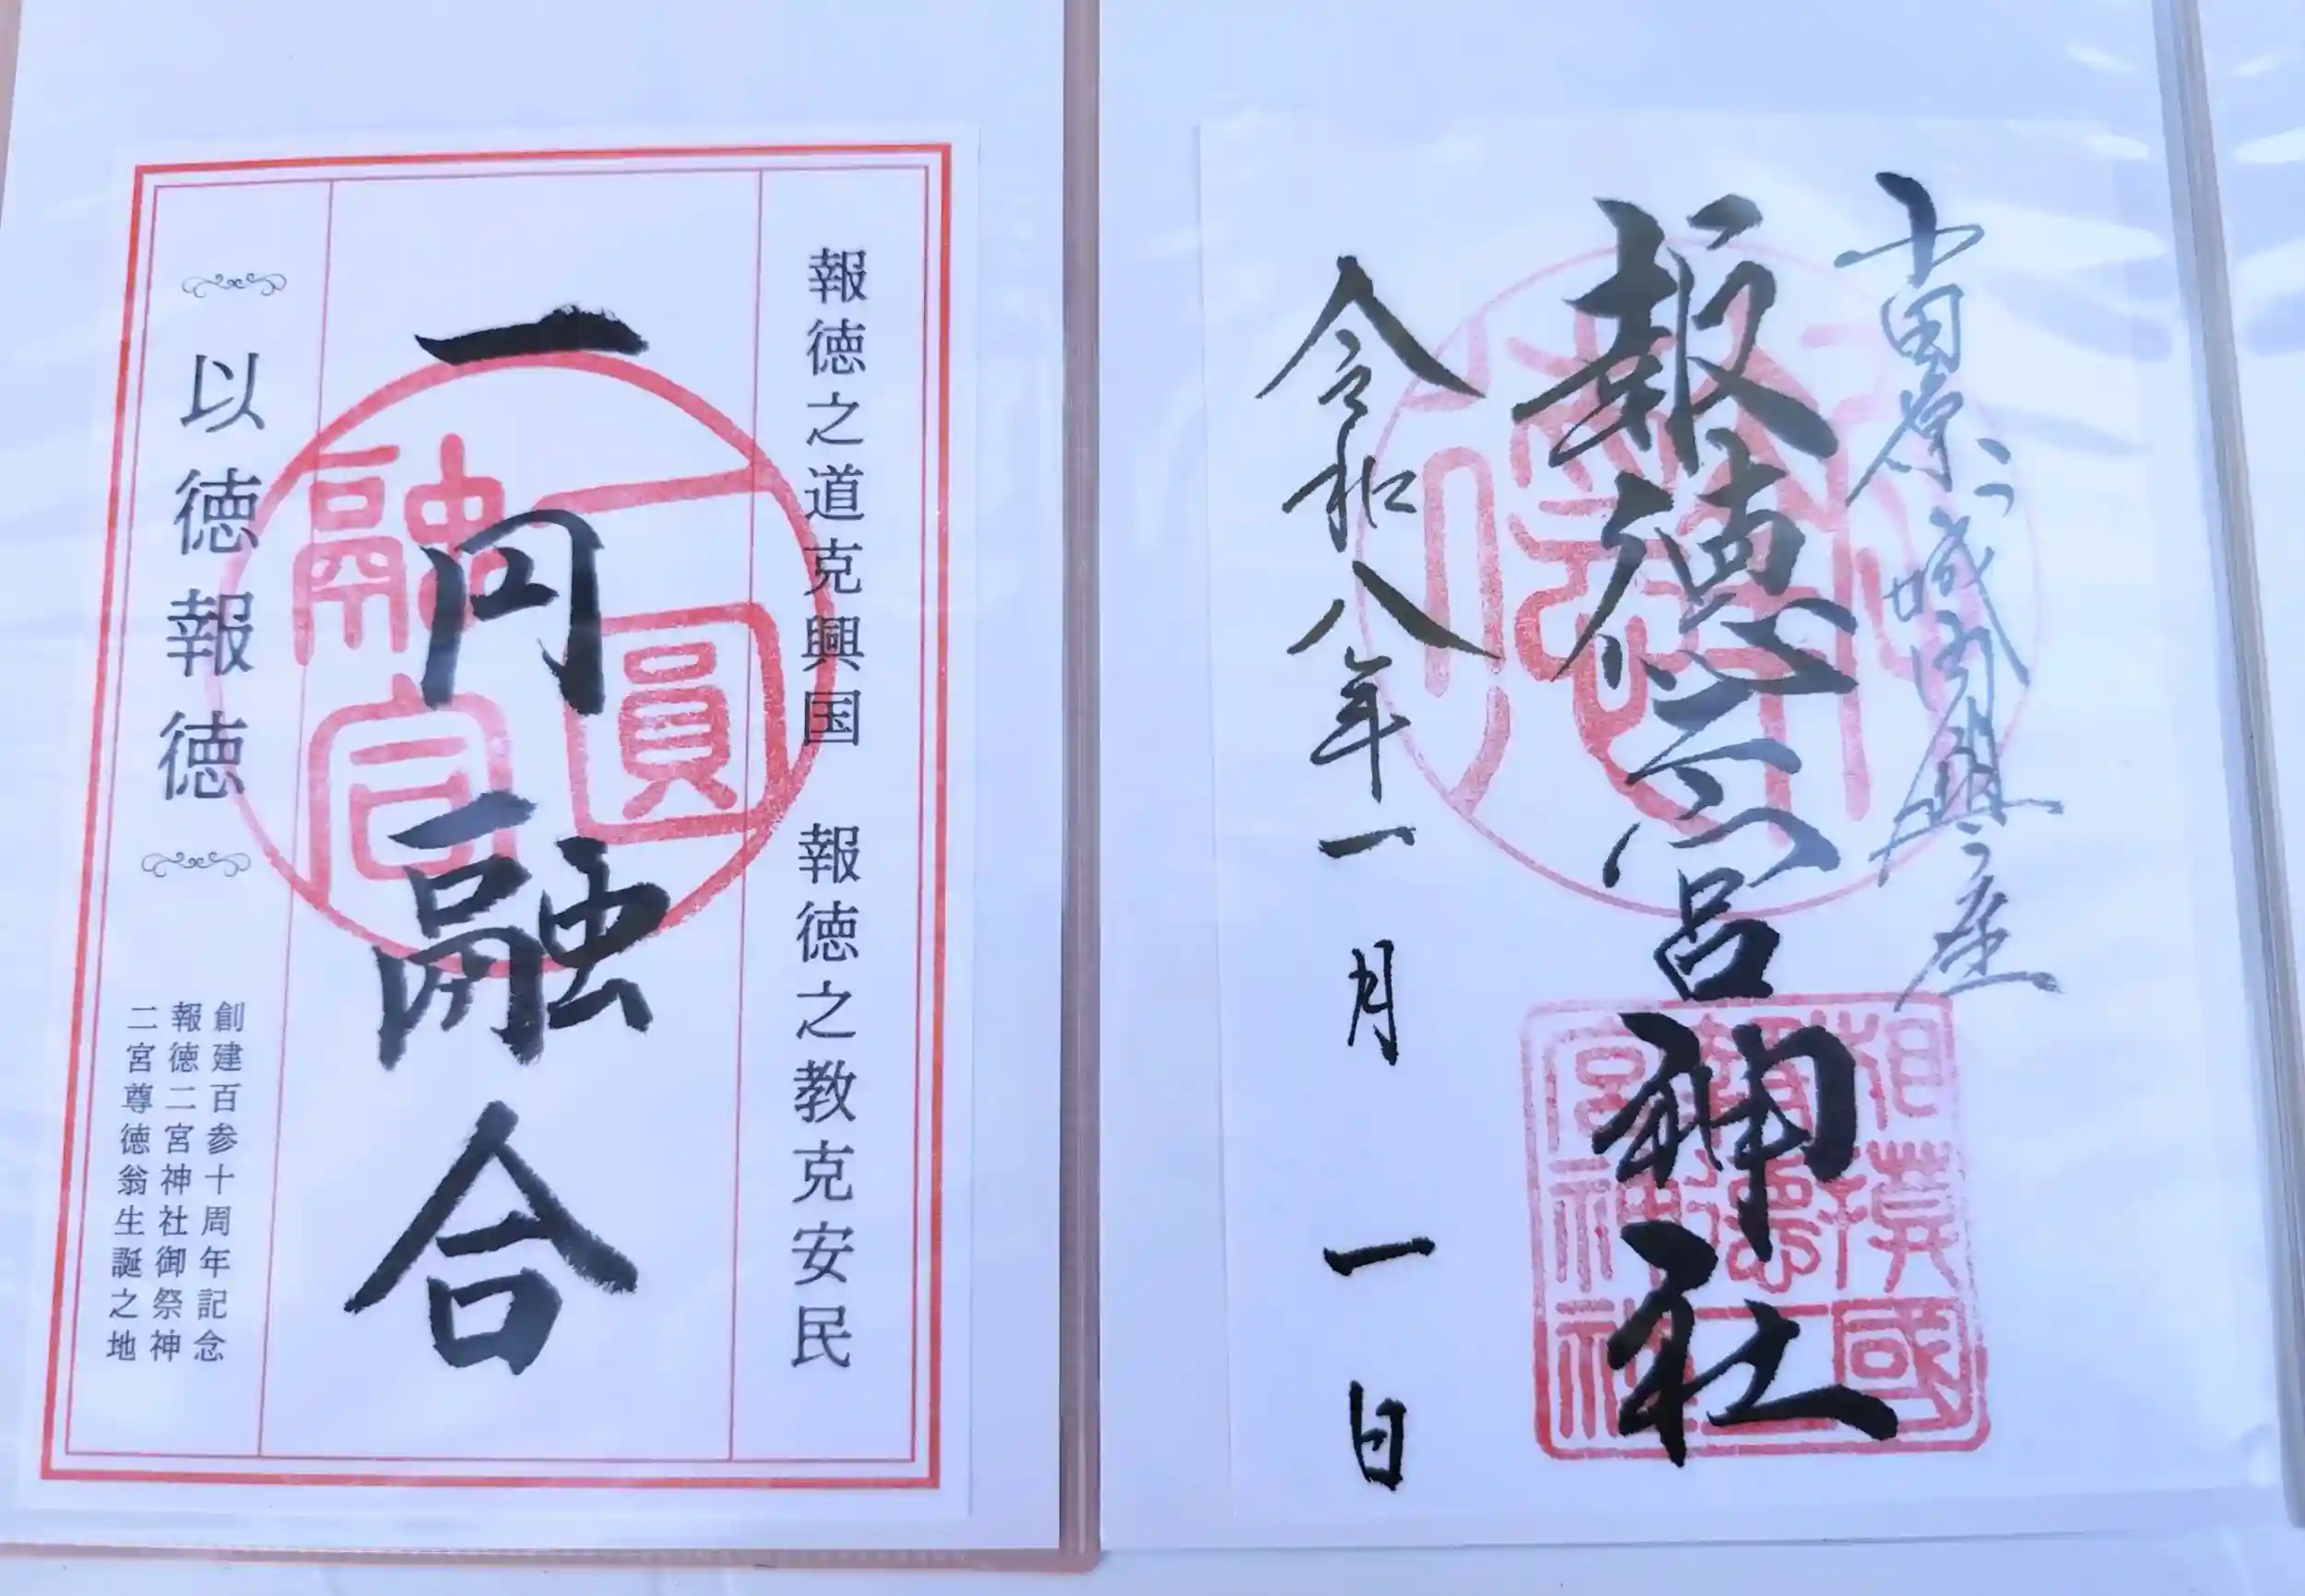 小田原城内鎮座
報徳二宮神社
相模國
報德二
宮神社
令和八年一月一日
報徳之道克興国　報徳之教克安民
一円融合
一圓
融合
以徳報徳
創建百参十周年記念
報徳二宮神社御祭神
二宮尊徳翁生誕之地